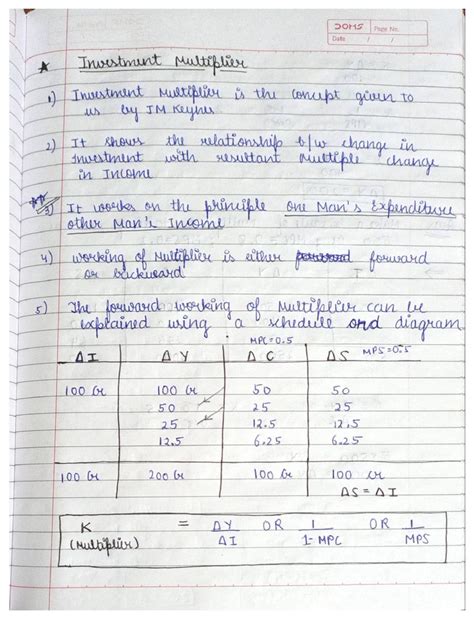 DOMS Page No.
Date / /
★ Investment Multiplier
1) Investment Multiplier is the concept given to
us by JM Keynes
2) It shows the relationship b/w change in
investment with resultant multiple change
in Income
3) It works on the principle one Man's Expenditure
other Man's Income
4) working of Multiplier is either forward forward
or backward
5) The forward working of Multiplier can be
explained using a schedule and diagram
MPC=0.5
Δ I Δ Y Δ C Δ S MPS=0.5
100 Cr 100 Cr 50 50
50 25 25
25 12.5 12.5
12.5 6.25 6.25
100 Cr 200 Cr 100 Cr 100 cr
ΔS = ΔI
K = ΔY OR 1 OR 1
(Multiplier) ΔI 1-MPC MPS